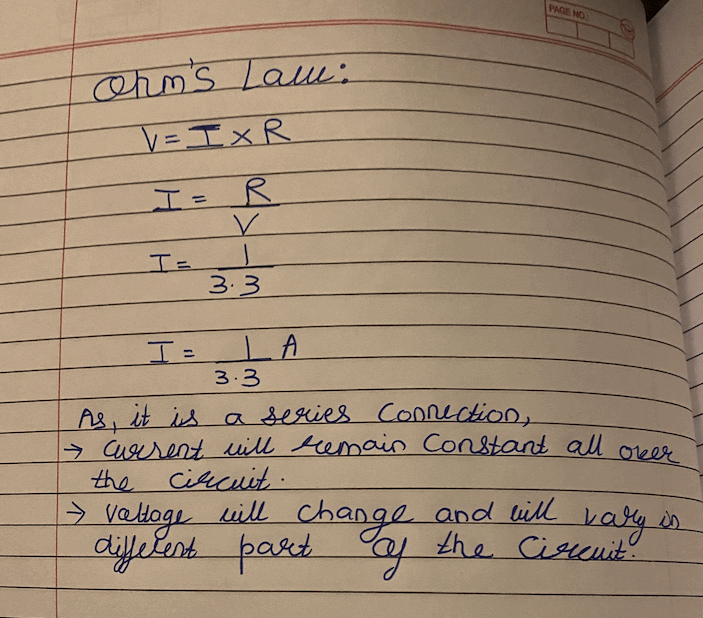 PAGE NO:
Ohm's Law:
V = I × R
I = R/V
I = 1/3.3
I = 1/3.3 A
As, it is a series Connection,
→ Current will remain Constant all over
the circuit.
→ Voltage will change and will vary in
different part of the Circuit.